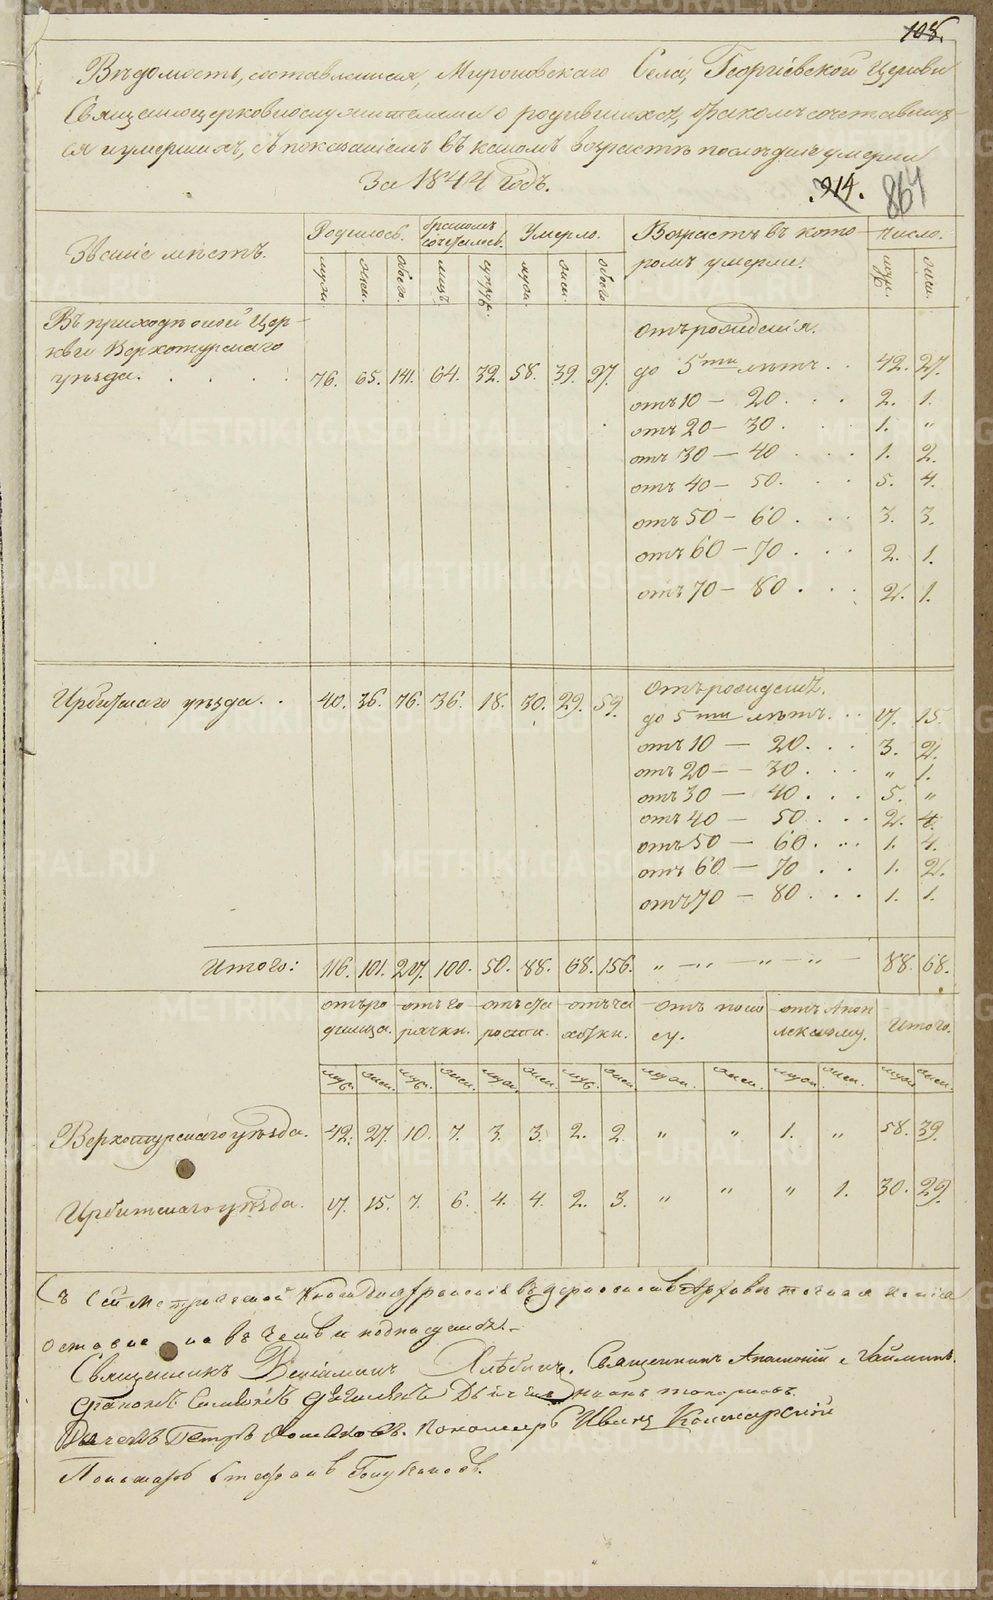 108.
Вѣдомость, составленная, Мироновскаго Села, Георгіевской Церкви
Священноцерковнослужителями о родившихся, бракомъ сочетавших-
ся и умершихъ, съ показаніемъ въ каком возрастѣ послѣдніе умерли
За 1844 годъ.
914. 864
Званіе мѣстъ. Родилось. бракомъ сочеталось. Умерло. Возрастъ въ кото- число.
ромъ умерли.
муж. жен. обоего. лицъ супруж. муж. жен. обоего муж. жен.
Въ приходѣ оной Цер- отъ рожденія.
кви Верхотурскаго
уѣзда. . . . . 76. 65. 141. 64. 32. 58. 39. 97. до 5ти лѣтъ . . 42. 27.
отъ 10 — 20 . . . 2. 1.
отъ 20 — 30 . . . 1. "
отъ 30 — 40 . . . 1. 2.
отъ 40 — 50 . . . 5. 4.
отъ 50 — 60 . . . 3. 3.
отъ 60 — 70 . . . 2. 1.
отъ 70 — 80 . . . 2. 1.
Ирбитскаго уѣзда . . 40. 36. 76. 36. 18. 30. 29. 59. отъ рожденія.
до 5ти лѣтъ . . 17. 15.
отъ 10 — 20 . . . 3. 2.
отъ 20 — 30 . . . " 1.
отъ 30 — 40 . . . 5. "
отъ 40 — 50 . . . 2. 4.
отъ 50 — 60 . . . 1. 4.
отъ 60 — 70 . . 1. 2.
отъ 70 — 80 . . . 1. 1.
Итого: 116. 101. 217. 100. 50. 88. 68. 156. " — " — " — " — 88. 68.
отъ ро отъ го отъ ста отъ ча отъ поно отъ Апоп Итого.
димца. рячки. рости. хотки. су. лексиому.
муж. жен. муж. жен. муж. жен. муж. жен. муж. жен. муж. жен. муж. жен.
Верхотурскаго уѣзда. 42. 27. 10. 7. 3. 3. 2. 2. " " 1. " 58. 39.
Ирбитскаго уѣзда. 17. 15. 7. 6. 4. 4. 2. 3. " " " 1. 30. 29.
Съ сей метрической Книги для храненія въ церковномъ Архивѣ точная копія
оставлена въ чемъ и подписуемся.
Священникъ Веніаминъ Хлѣбинъ. Священникъ
Дьячекъ Петръ Пономарь Иванъ
Пономарь Стефанъ
METRIKI.GASO-URAL.RU